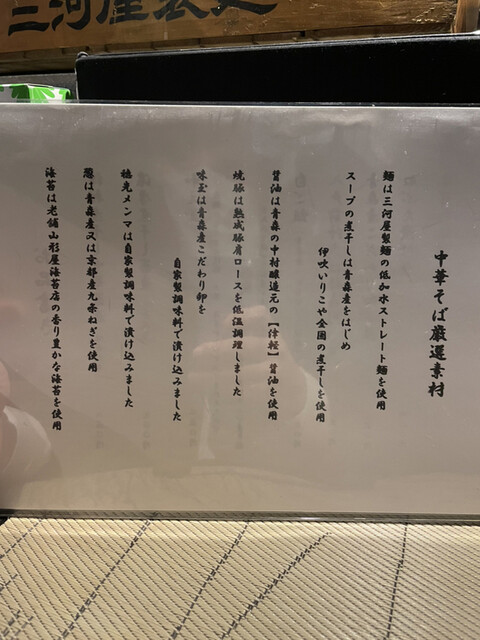 三河屋製麺
中華そば厳選素材
麺は三河屋製麺の低加水ストレート麺を使用
スープの煮干しは青森産をはじめ
伊吹いりこや全国の煮干しを使用
醤油は青森の中村醸造元の【津軽】醤油を使用
焼豚は熟成豚肩ロースを低温調理しました
味玉は青森産こだわり卵を
自家製調味料で漬け込みました
穂先メンマは自家製調味料で漬け込みました
葱は青森産又は京都産九条ねぎを使用
海苔は老舗山形屋海苔店の香り豊かな海苔を使用